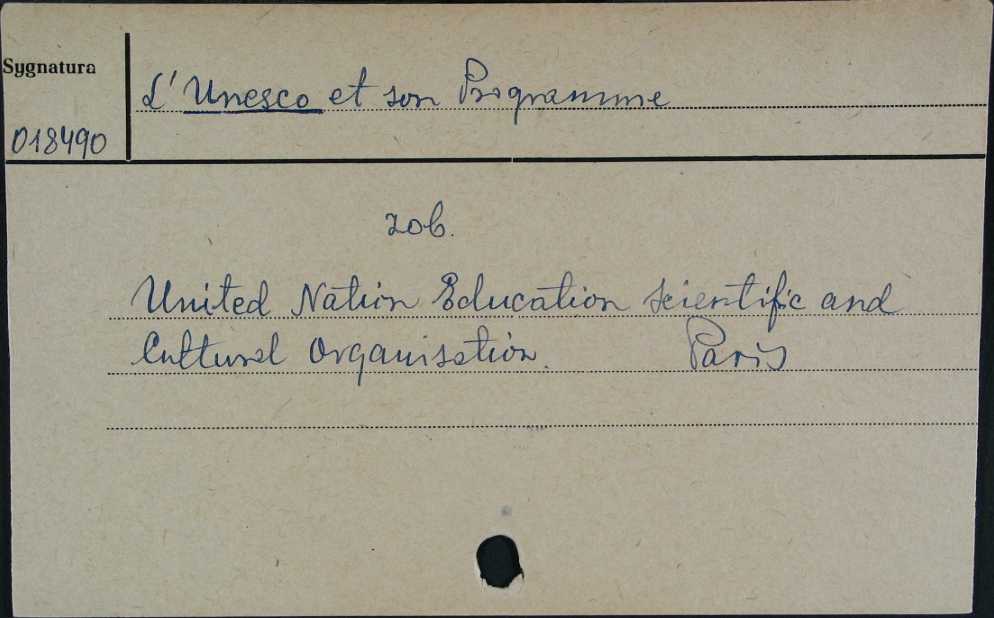 Sygnatura
L'Unesco et son Programme
018490
zob.
United Nation Education Scientific and
Cultural Organisation. Paris